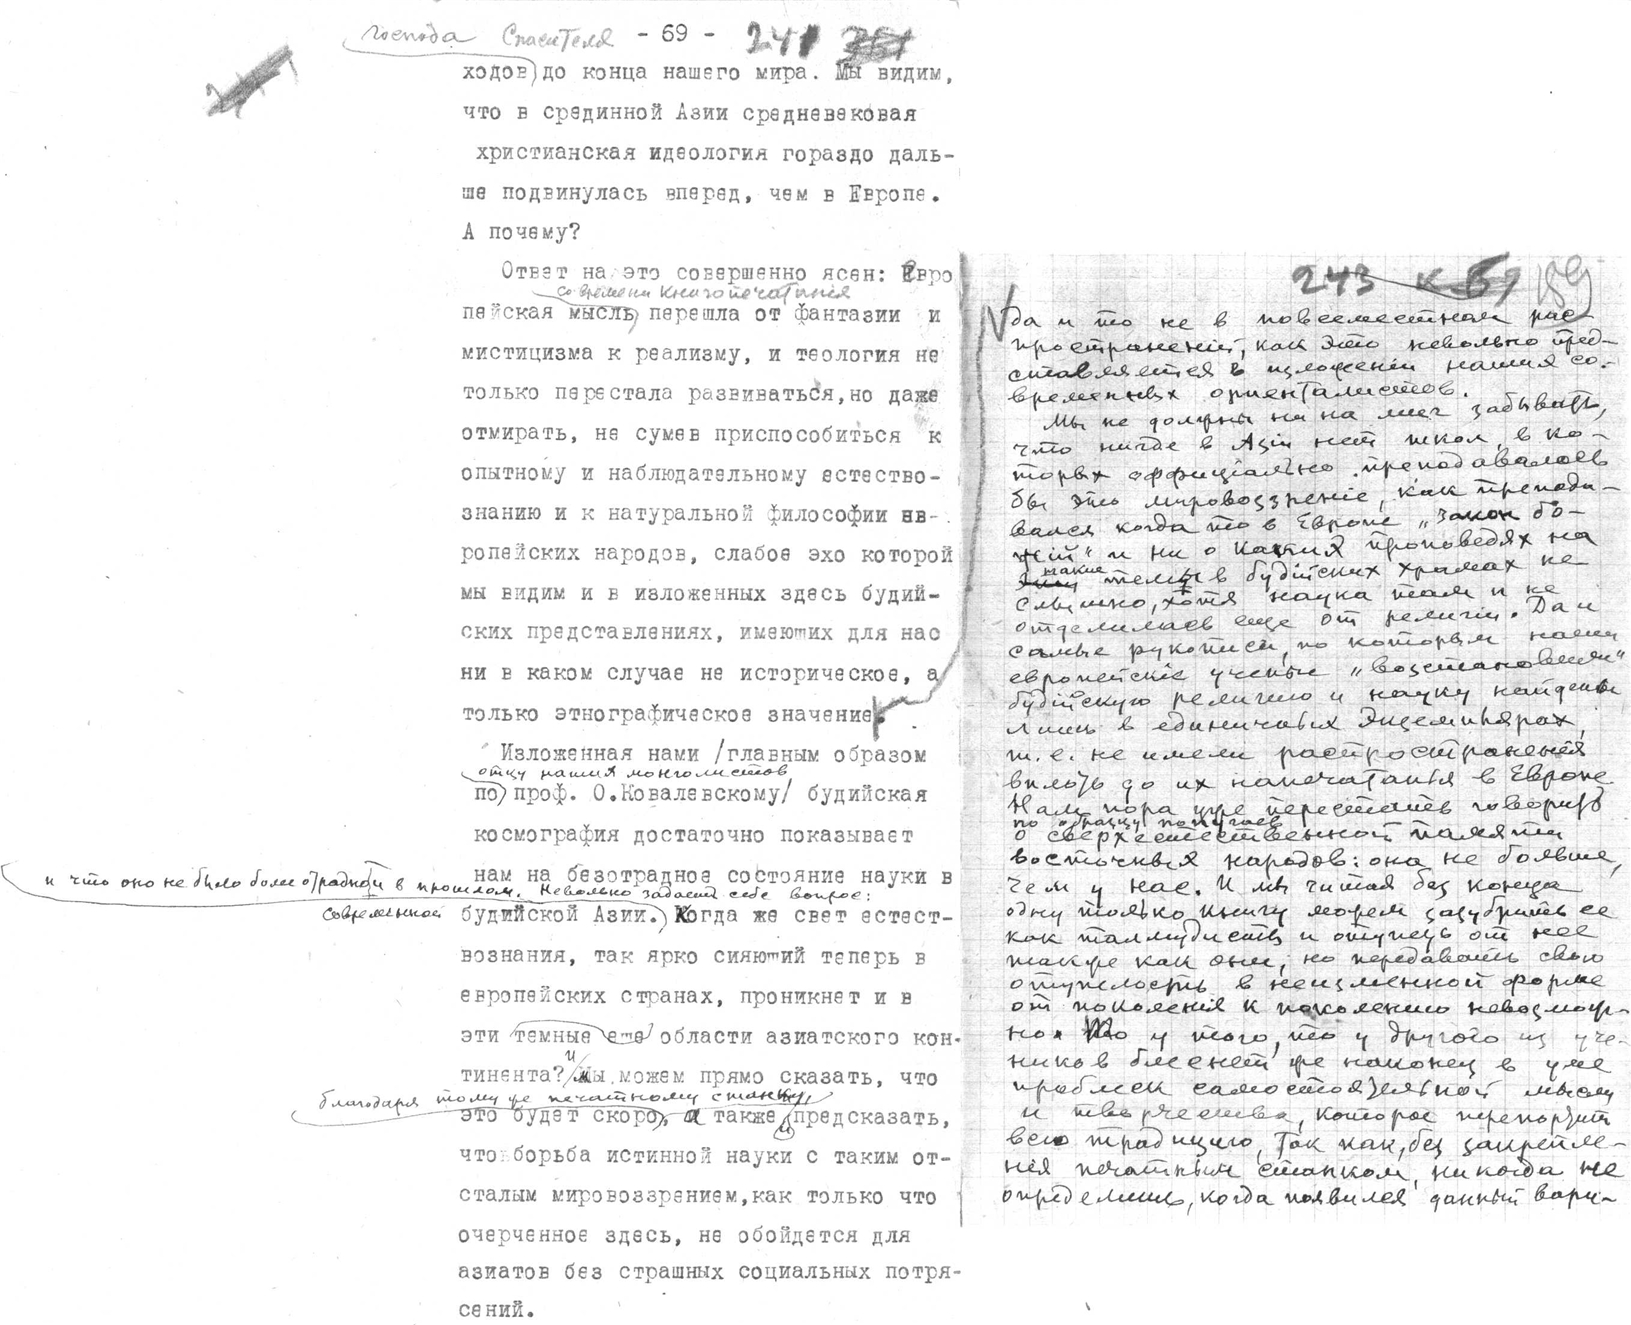 господа Спасителя - 69 - 241
ходов) до конца нашего мира. Мы видим,
что в срединной Азии средневековая
христианская идеология гораздо даль-
ше подвинулась вперед, чем в Европе.
А почему?
Ответ на это совершенно ясен: Евро
со времени книгопечатанiя
пейская мысль) перешла от фантазии и
мистицизма к реализму, и теология не
только перестала развиваться,но даже
отмирать, не сумев приспособиться к
опытному и наблюдательному естество-
знанию и к натуральной философии ев-
ропейских народов, слабое эхо которой
мы видим и в изложенных здесь будий-
ских представлениях, имеющих для нас
ни в каком случае не историческое, а
только этнографическое значение,
Изложенная нами /главным образом
отцу наших монголистов
по) проф. О.Ковалевскому/ будийская
космография достаточно показывает
нам на безотрадное состояние науки в
и что оно не было более отрадной в прошлом. Невольно задаешь себе вопрос:
современной будийской Азии.) Когда же свет естест-
вознания, так ярко сияющий теперь в
европейских странах, проникнет и в
эти темные еще области азиатского кон-
тинента? И мы можем прямо сказать, что
благодаря тому же печатному станку,
это будет скоро), а также и предсказать,
что борьба истинной науки с таким от-
сталым мировоззрением,как только что
очерченное здесь, не обойдется для
азиатов без страшных социальных потря-
сений.
243 к 69 189
да и то не в повсеместном рас-
пространенiи, как это невольно пред-
ставляется в изложенiи наших со-
временных орiенталистов.
Мы не должны ни на миг забывать,
что нигде в Азiи нет школ, в ко-
торых оффицiально преподавалось
бы это мировоззренiе, как препода-
вался когда то в Европе „Закон бо-
жiй" и ни о каких проповедях на
такие темы в будiйских храмах не
слышно, хотя наука там и не
отделилась еще от религiи. Да и
самые рукописи, по которым наши
европейскiе ученые „возстановили"
будiйскую религiю и науку найдены
лишь в единичных экземплярах,
т. е. не имели распространенiя
вплоть до их напечатанiя в Европе.
Нам пора уже перестать говорить
по образцу попугаев
о сверхъестественной памяти
восточных народов: она не больше,
чем у нас. И мы читая без конца
одну только книгу можем зазубрить ее
как талмудисты и отупеть от нее
также как они, но передавать свою
отупелость в неизменной форме
от поколенiя к поколенiю невозмож-
но. То у того, то у другого из уче-
ников блеснет же наконец в уме
проблеск самостоятельной мысли
и творчества, которое перепортит
всю традицiю, так как, без закрепле-
нiя печатным станком, никогда не
определишь, когда появился данный вари-